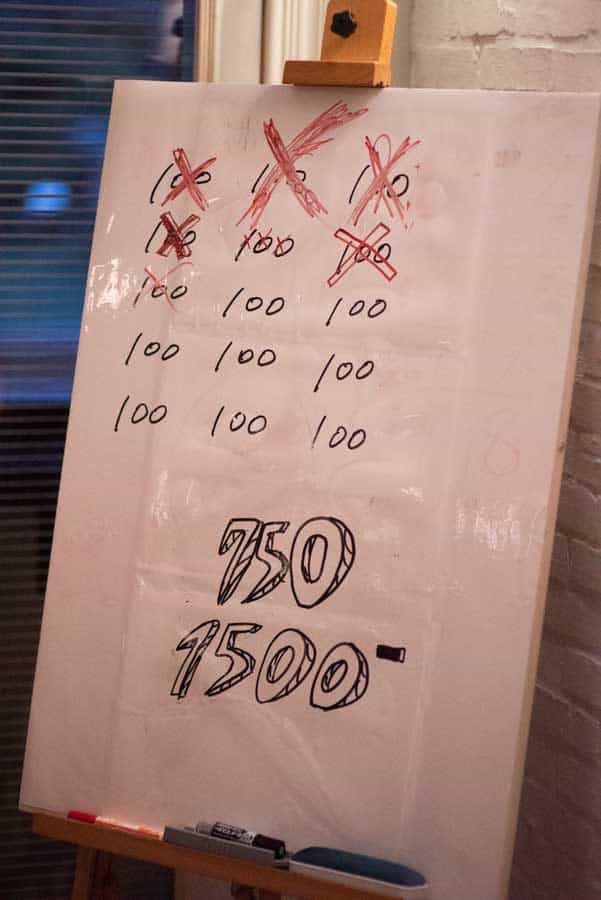 100 100 100
100 100 100
100 100 100
100 100 100
100 100 100
750
1500-